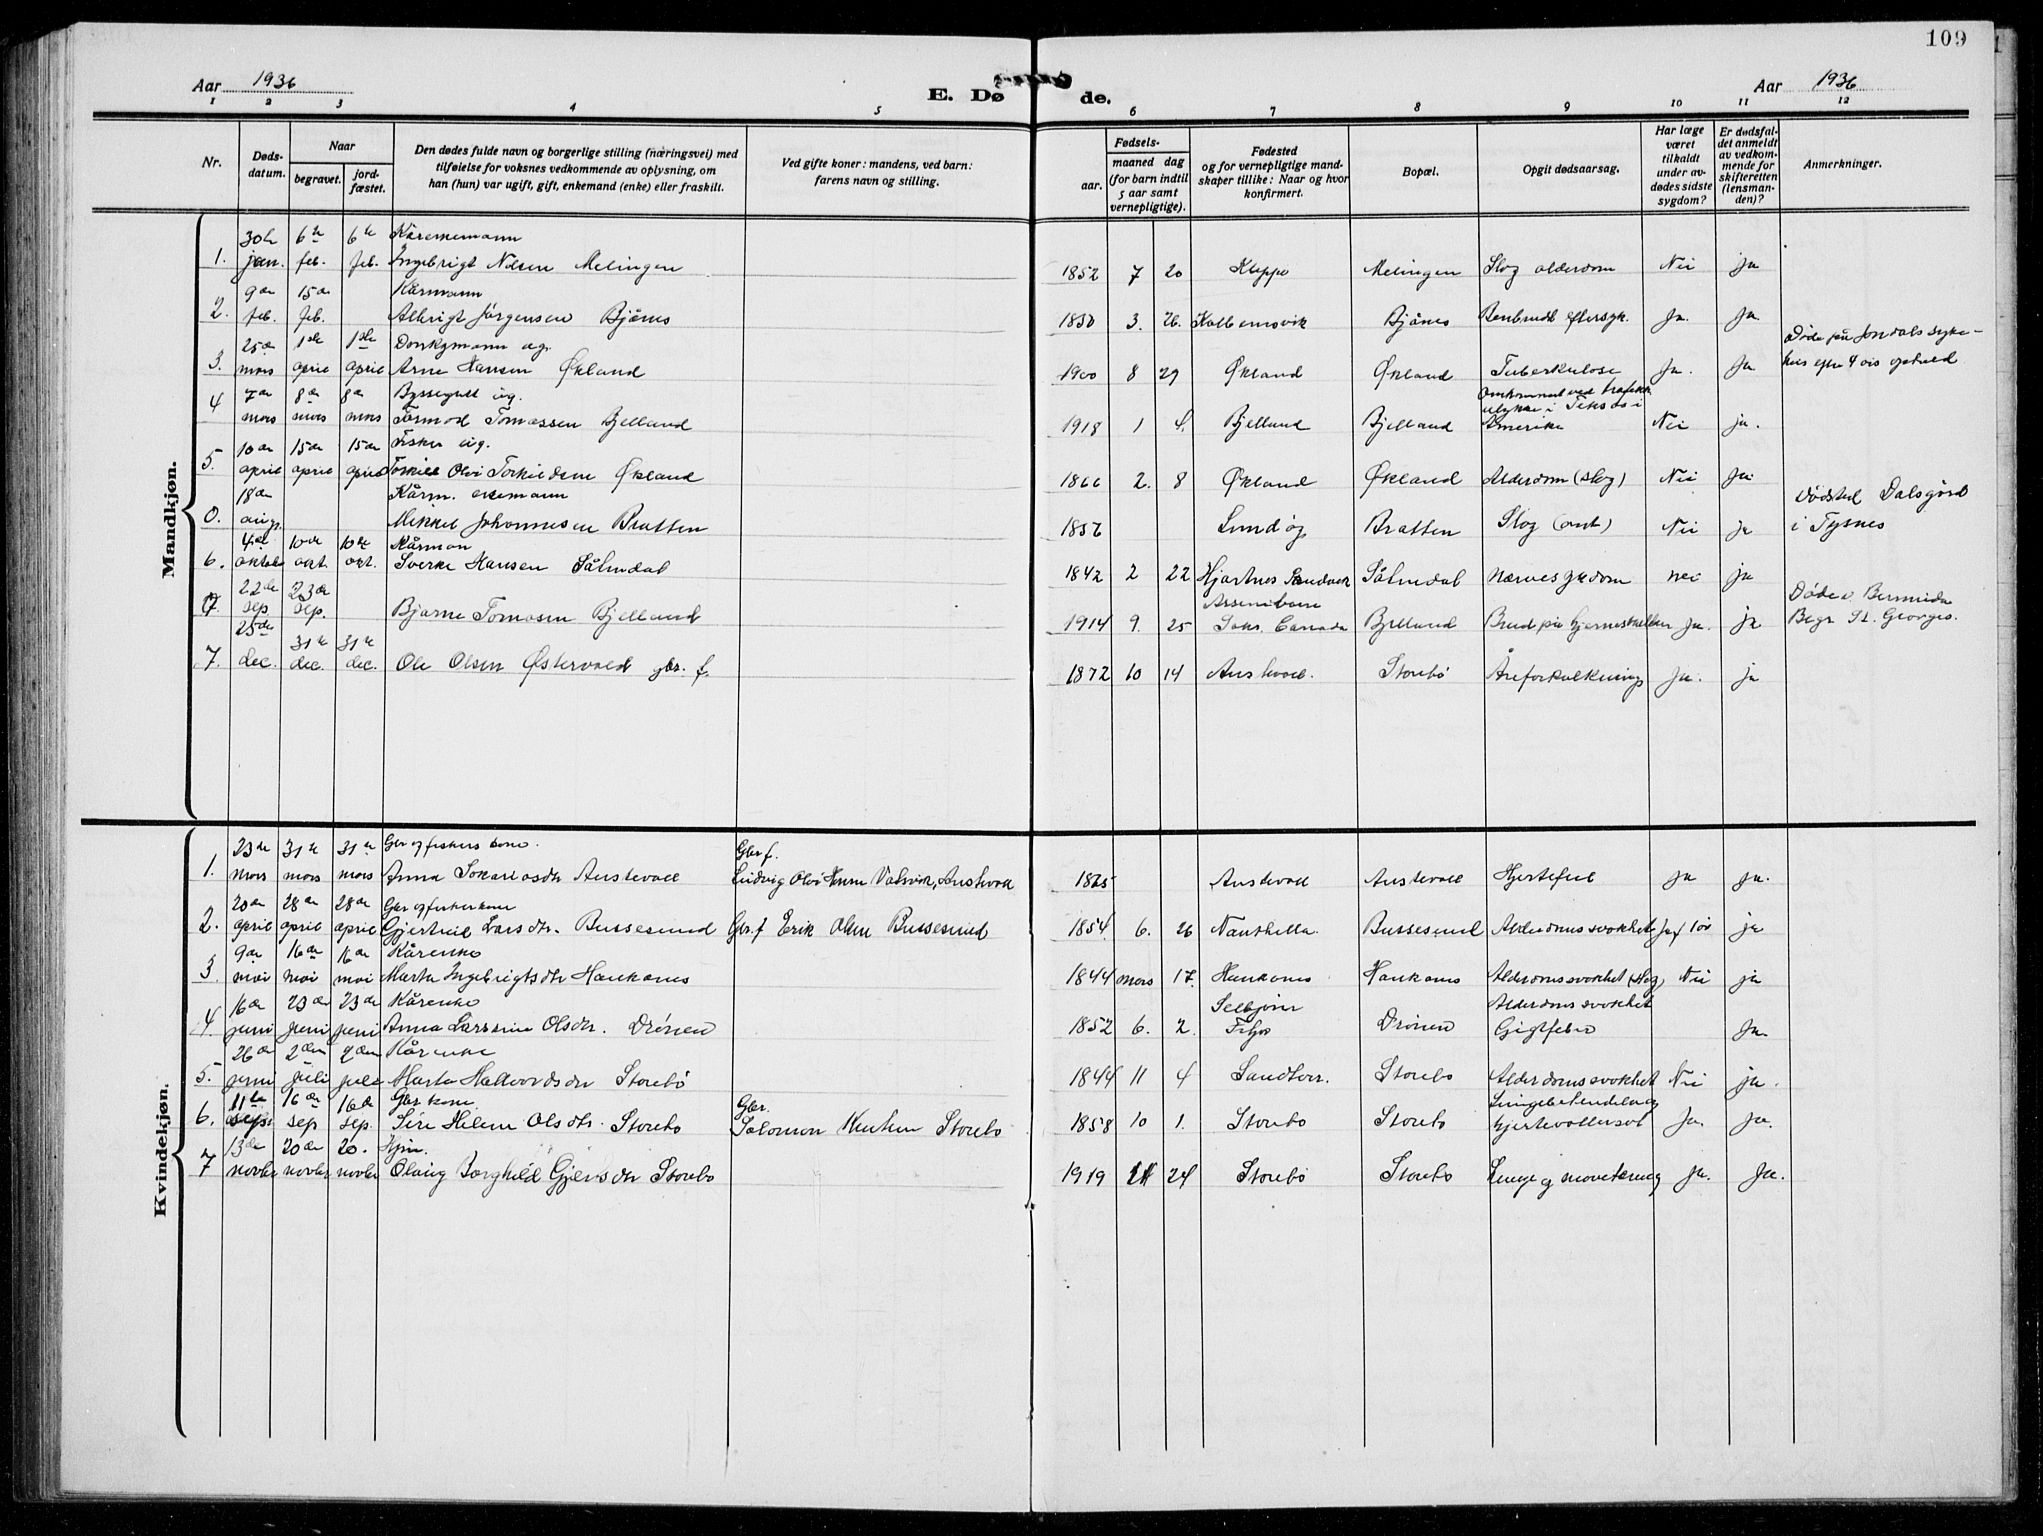 109
Aar 1936
E. Døde.
Aar 1936
1 2 3 4 5 6 7 8 9 10 11 12
Nr.
Døds-datum.
Naar
begravet.
jord-fæstet.
Den dødes fulde navn og borgerlige stilling (næringsvei) med
tilføielse for voksnes vedkommende av oplysning, om
han (hun) var ugift, gift, enkemand (enke) eller fraskilt.
Ved gifte koner: mandens, ved barn:
farens navn og stilling.
Fødsels-
aar.
maaned dag
(for barn indtil
5 aar samt
vernepligtige).
Fødested
og for vernepligtige mand-
skaper tillike: Naar og hvor
konfirmert.
Bopæl.
Opgit dødsaarsag.
Har læge
været
tilkaldt
under av-
dødes sidste
sygdom?
Er dødsfal-
det anmeldt
av vedkom-
mende for
skifteretten
(lensman-
den)?
Anmerkninger.
Mandkjøn.
30te 6te 6te
1. jan. feb. feb. Ingebrigt Nilsen Melingen 1852 7 20 Kleppe Melingen Slag alderdom Nei ja
9de 15de Kårmann
2. feb. feb. Albrigt Jørgensen Bjånes 1850 3. 26. Kolbeinsvik Bjånes Benbrudd eftersyk. Ja. Ja
25de 1ste 1ste ug.
3. mars april april Arne Hansen Økland 1900 8 29 Økland Økland Tuberkulose Ja. Ja Døde på Jondals syke-
hus efter 4 års ophold
7de 8de 8de Byssegutt ug.
4 mars mars mars Tormod Tomassen Bjelland 1918 1 4. Bjelland Bjelland Omkommet ved trafikk
ulykke i Teksas i
Amerika Nei ja.
10de 15de 15de Fisker ug.
5. april april april Torkild Olai Torkildsen Økland 1866 2. 8 Økland Økland Alderdom (slag) Nei Ja
18de Kårm. enkemann
0. aug. Mikkel Johannesen Bratten 1856 Lundøy Bratten Slag Nei ja Dødsted Dalsgård
i Tysnes
4de 10de 10de Kårman
6. oktober okt. okt. Sverke Hansen Såtendal 1842 2 22 Hjartnes Sandvik Såtendal nervesykdom nei ja
22de 23de
7. sep. sep. Bjarne Tomasen Bjelland 1914 9. 25 Assiniboia
Sask. Canada Bjelland Brud på hjerneskallen Ja. ja Døde v. Bermuda
Begr. St. Georges.
25de 31te 31te
7. dec. dec. dec. Ole Olsen Østervold gbr. f. 1872 10 14 Austevoll. Storebø Åreforkalkning Ja. ja
Kvindekjøn.
23de 31te 31te Gbr og fiskers kone. Gbr f.
1. mars mars mars Anna Sakariasdtr Austevoll Ludvig Olai Valvik, Austevoll 1865 Austevoll Austevoll Hjertefeil ja ja.
20de 28de 28de Gbr og fiskerkone
2. april april april Gjertrud Larsdtr. Bussesund Gbr. f Erik Olsen Bussesund 1854. 6. 26 Bussesund Alderdomssvakhet ja
9de 16de 16de Kårenke
3. mai mai mai Marta Ingebrigtsdtr Haukanes 1844 mars 17. Haukanes Haukanes Alderdomssvakhet (slag) Nei ja
16de 23de 23de Kårenke
4. juni juni juni Anna Larsine Olsdtr. Drönen 1852 6. 2. Selbjørn
Fitjar Drönen Alderdomssvakhet
Gigtfeber Ja
26de 2den 2den Kårenke
5. juni juli juli Marta Hallvordsdtr Storebø 1844 11 4 Sandtorv. Storebø Alderdomssvakhet Nei ja.
11te 16de 16de Gbr kone. Gbr.
6. sep. sep sep. Siri Helene Olsdtr. Storebø Salomon Knutsen Storebø 1858 10 1. Storebø Storebø Lungebetendelse og
hjertevattersot Ja. Ja.
13de 20de 20. Hjm.
7 novbr novbr novbr Olaug Borghild Gjertsdtr Storebø 1919 11 24 Storebø Storebø Lunge og mavetæring ja. Ja.